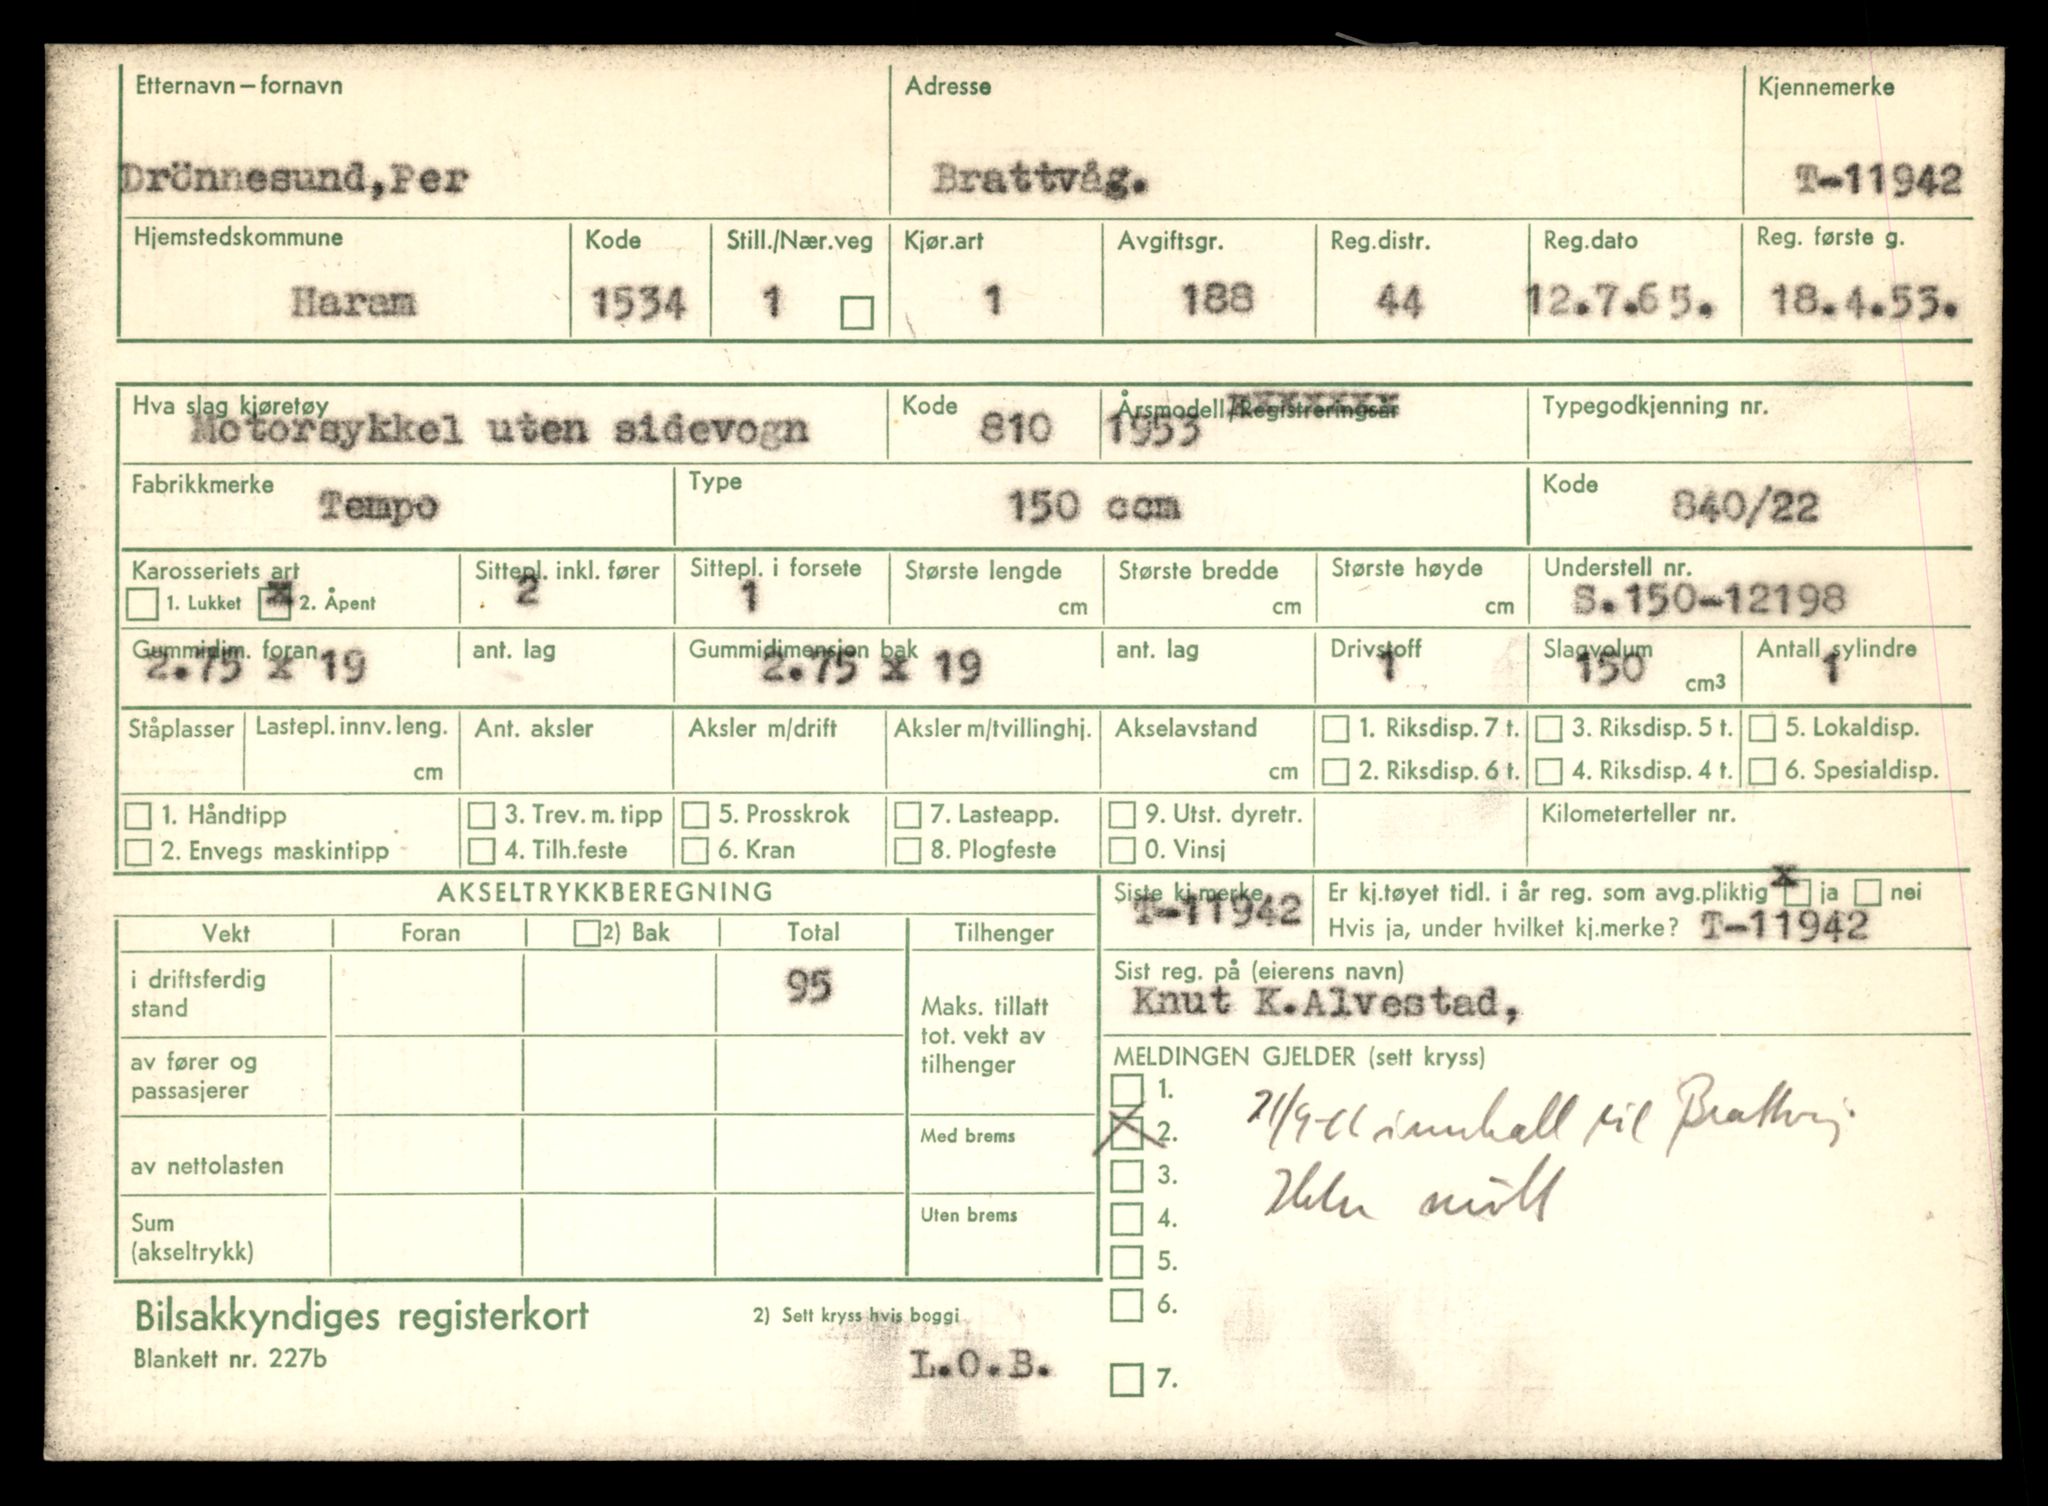 Etternavn – fornavn Adresse Kjennemerke
Drönnesund,Per Brattvåg. T-11942
Hjemstedskommune Kode Still./Nær.veg Kjør.art Avgiftsgr. Reg.distr. Reg.dato Reg. første g.
Haram 1534 1 1 188 44 12.7.65. 18.4.53.
Hva slag kjøretøy Kode Årsmodell/Registreringsår Typegodkjenning nr.
Motorsykkel uten sidevogn 810 1953
Fabrikkmerke Type Kode
Tempo 150 ccm 840/22
Karosseriets art Sittepl. inkl. fører Sittepl. i forsete Største lengde Største bredde Største høyde Understell nr.
1. Lukket x 2. Åpent 2 1 cm cm cm S.150-12198
Gummidim. foran ant. lag Gummidimensjon bak ant. lag Drivstoff Slagvolum Antall sylindre
2.75 x 19 2.75 x 19 1 150 cm3 1
Ståplasser Lastepl. innv. leng. Ant. aksler Aksler m/drift Aksler m/tvillinghj. Akselavstand 1. Riksdisp. 7 t. 3. Riksdisp. 5 t. 5. Lokaldisp.
cm cm 2. Riksdisp. 6 t. 4. Riksdisp. 4 t. 6. Spesialdisp.
1. Håndtipp 3. Trev. m. tipp 5. Prosskrok 7. Lasteapp. 9. Utst. dyretr. Kilometerteller nr.
2. Envegs maskintipp 4. Tilh.feste 6. Kran 8. Plogfeste 0. Vinsj
AKSELTRYKKBEREGNING Siste kj.merke Er kj.tøyet tidl. i år reg. som avg.pliktig x ja nei
T-11942 Hvis ja, under hvilket kj.merke? T-11942
Vekt Foran 2) Bak Total Tilhenger
Sist reg. på (eierens navn)
Knut K.Alvestad,
i driftsferdig stand 95 Maks. tillatt tot. vekt av tilhenger
av fører og passasjerer
av nettolasten Med brems
Sum (akseltrykk) Uten brems
MELDINGEN GJELDER (sett kryss)
1.
2. innkall til Brattvåg
3. Ikke møtt
4.
5.
6.
7.
Bilsakkyndiges registerkort 2) Sett kryss hvis boggi
Blankett nr. 227b L.O.B.